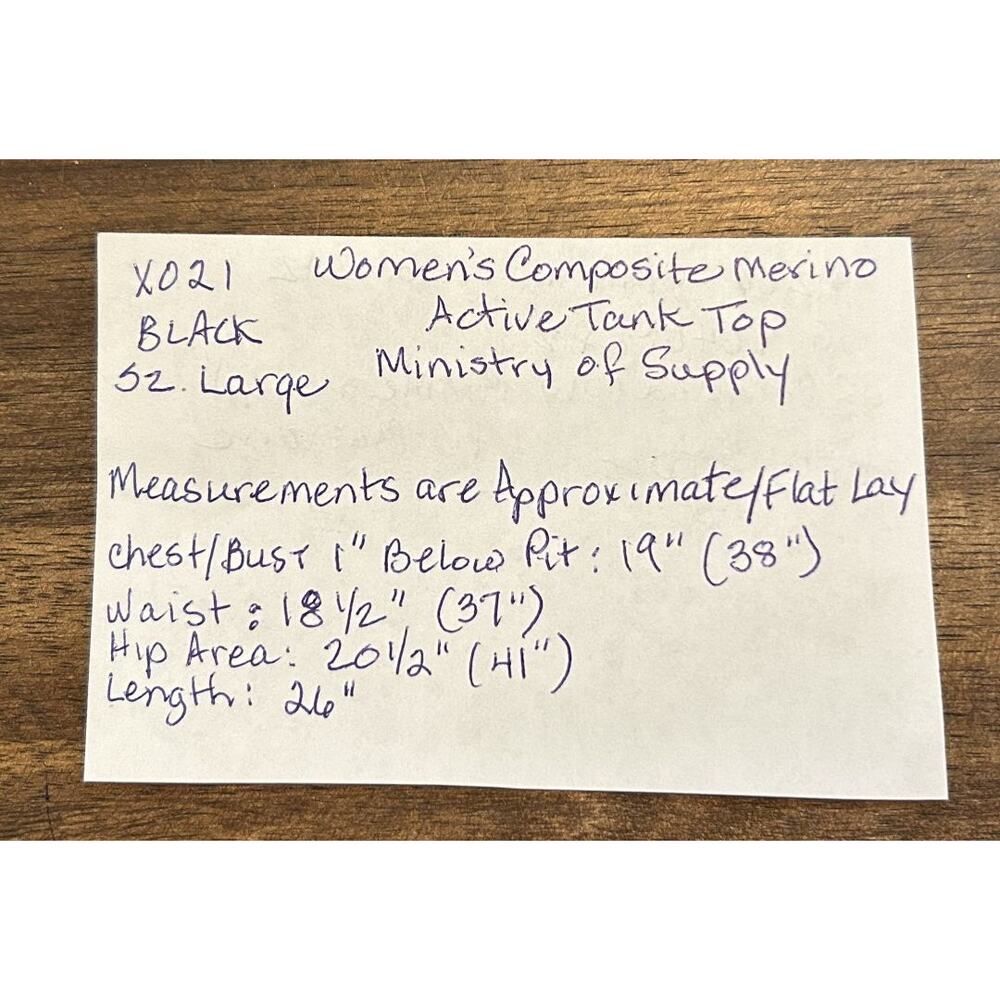 X021 Women's Composite Merino
BLACK Active Tank Top
SZ. Large Ministry of Supply
Measurements are Approximate/Flat Lay
Chest/Bust 1" Below Pit: 19" (38")
Waist: 18 1/2" (37")
Hip Area: 20 1/2" (41")
Length: 26"